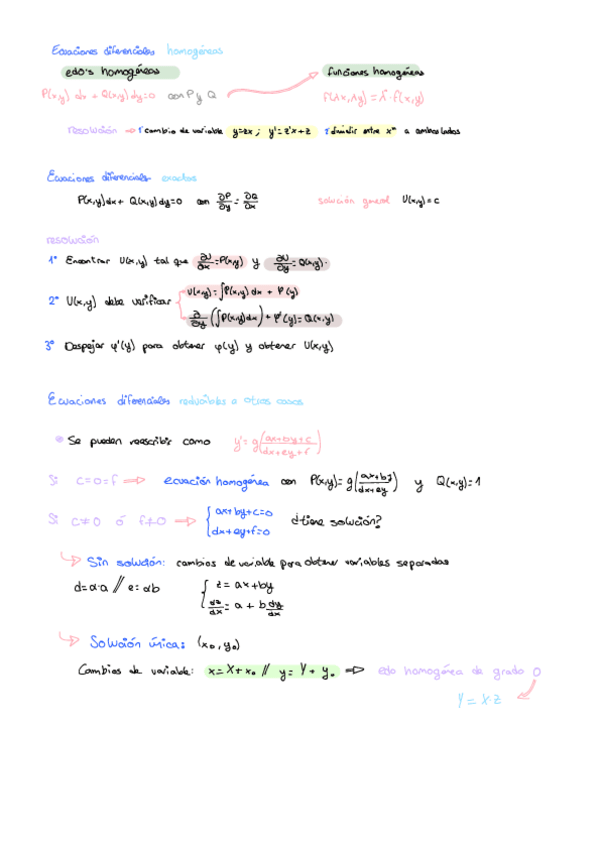 Ecuaciones diferenciales homogéneas
edo's homogéneas
funciones homogéneas
P(x,y) dx + Q(x,y) dy=0 con P y Q
f(λx,λy) = λⁿ·f(x,y)
resolución → 1º cambio de variable y=zx ; y'= z'x+z 2º dividir entre xᵐ a ambos lados
Ecuaciones diferenciales exactas
P(x,y)dx+ Q(x,y)dy=0 con ∂P/∂y = ∂Q/∂x
solución general U(x,y)=c
resolución
1º Encontrar U(x,y) tal que ∂U/∂x = P(x,y) y ∂U/∂y = Q(x,y).
2º U(x,y) debe verificar
U(x,y) = ∫P(x,y) dx + φ(y)
∂/∂y (∫P(x,y)dx) + φ'(y) = Q(x,y)
3º Despejar φ'(y) para obtener φ(y) y obtener U(x,y)
Ecuaciones diferenciales reducibles a otros casos
Se pueden reescribir como y'= g(ax+by+c/dx+ey+f)
Si c=0=f ⇒ ecuación homogénea con P(x,y)= g(ax+by/dx+ey) y Q(x,y)=1
Si c≠0 ó f≠0 ⇒ { ax+by+c=0
dx+ey+f=0
¿tiene solución?
Sin solución: cambios de variable para obtener variables separadas
d=α·a // e=αb
{ z = ax+by
dz/dx = a + b dy/dx
Solución única: (x₀, y₀)
Cambios de variable: x = X + x₀ // y = Y + y₀ ⇒ edo homogénea de grado 0
Y = X·Z